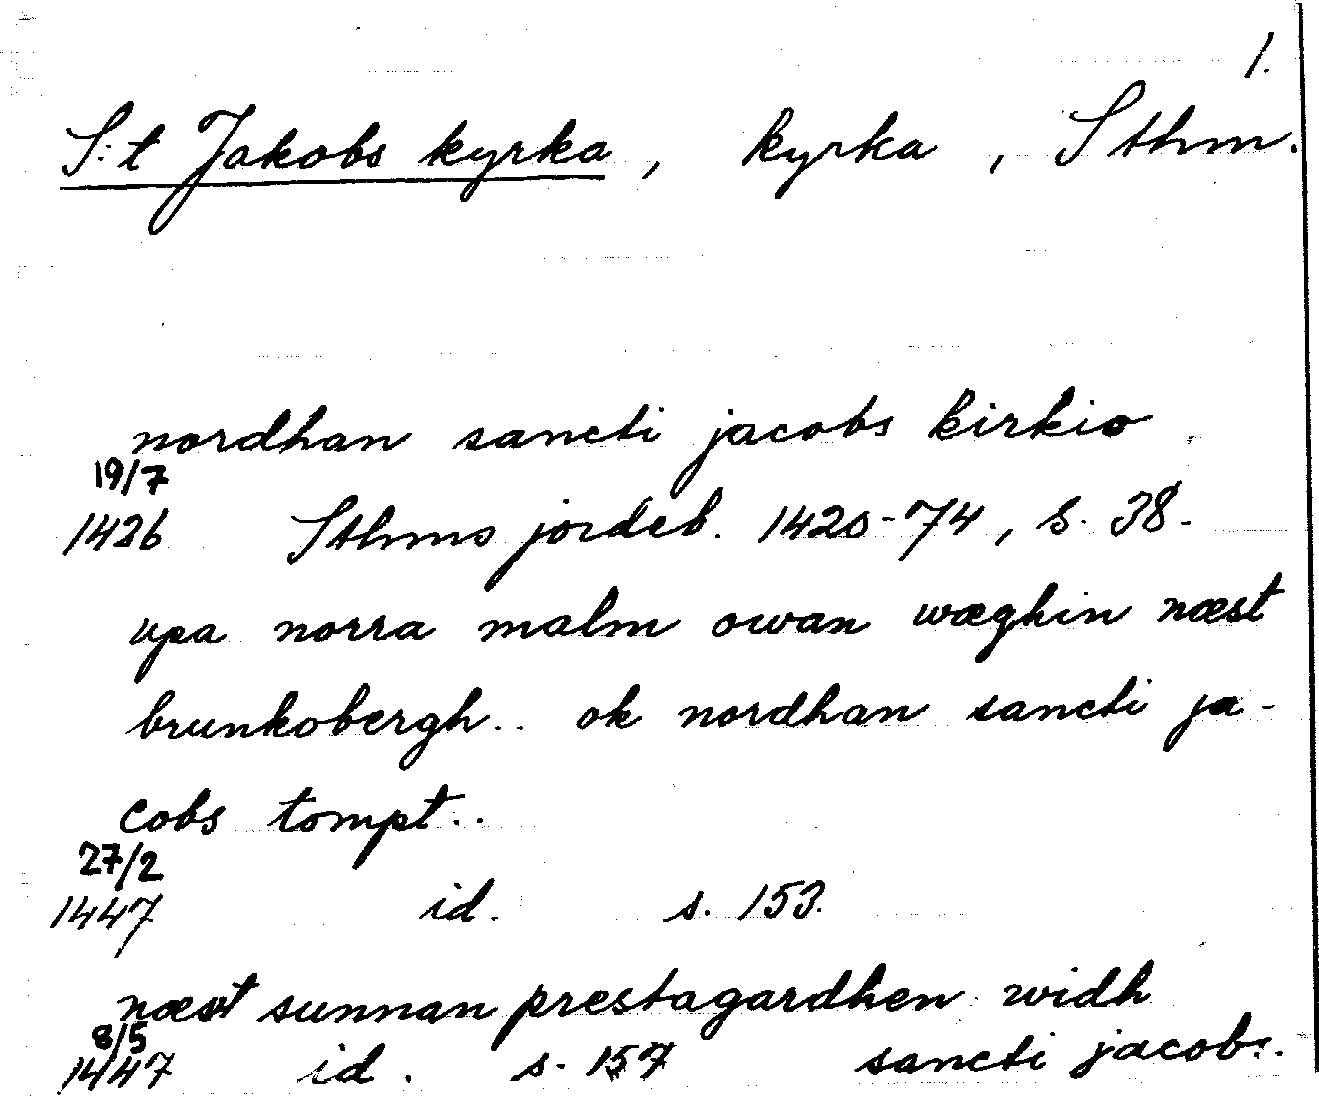 1.
S:t Jakobs kyrka, kyrka, Sthm.
nordhan sancti jacobs kirkio
19/7
1426 Sthms jordeb. 1420-74, s. 38.
upa norra malm owan wæghin næst
brunkobergh.. ok nordhan sancti ja-
cobs tompt..
27/2
1447 id. s. 153.
næst sunnan prestagardhen widh
8/5
1447 id. s. 157 sancti jacobs.